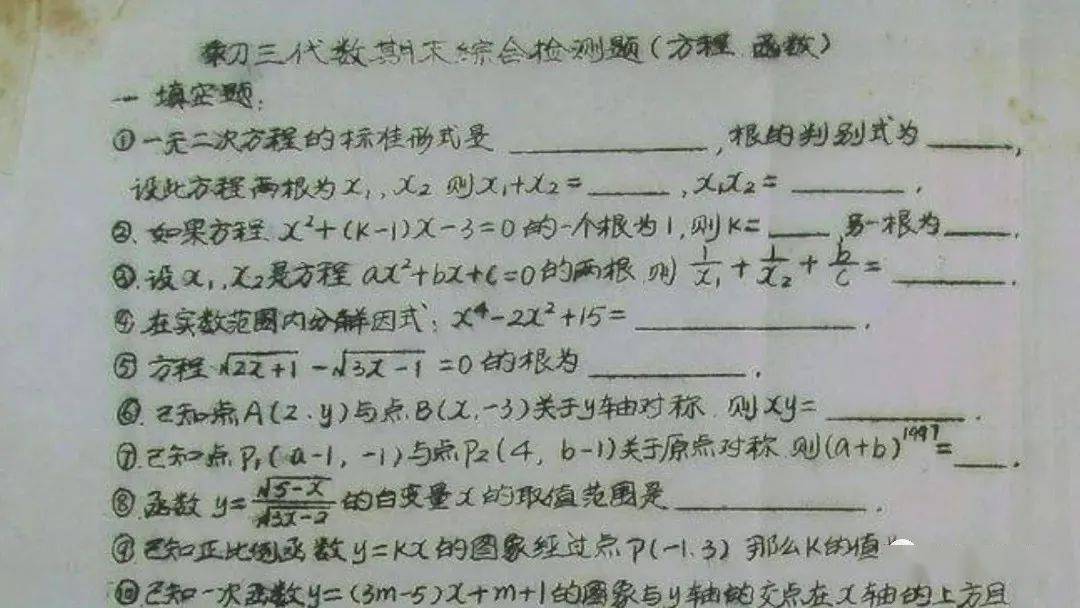 初三代数期末综合检测题(方程 函数)
一 填空题:
① 一元二次方程的标准形式是 ________ ,根的判别式为 ____,
设此方程两根为x₁, x₂ 则x₁+x₂=____ ,x₁x₂= ____ .
②. 如果方程 x²+(K-1)x-3=0的一个根为1,则K=____ 另一根为____.
③. 设x₁, x₂是方程 ax²+bx+c=0的两根 则 1/x₁ + 1/x₂ + b/c = ____ .
④ 在实数范围内分解因式: x⁴-2x²+15= ________ .
⑤ 方程 √2x+1 - √3x-1 =0的根为 ________ .
⑥. 已知点A(2.y)与点B(x,-3)关于y轴对称 则xy= ______ .
⑦. 已知点P₁(a-1, -1)与点P₂(4, b-1)关于原点对称 则(a+b)¹⁹⁹⁷=____.
⑧. 函数 y=√5-x/√3x-2 的自变量x的取值范围是 ________ .
⑨ 已知正比例函数y=Kx的图象经过点P(-1.3) 那么K的值
⑩ 已知一次函数y=(3m-5)x+m+1的图象与y轴的交点在x轴的上方且